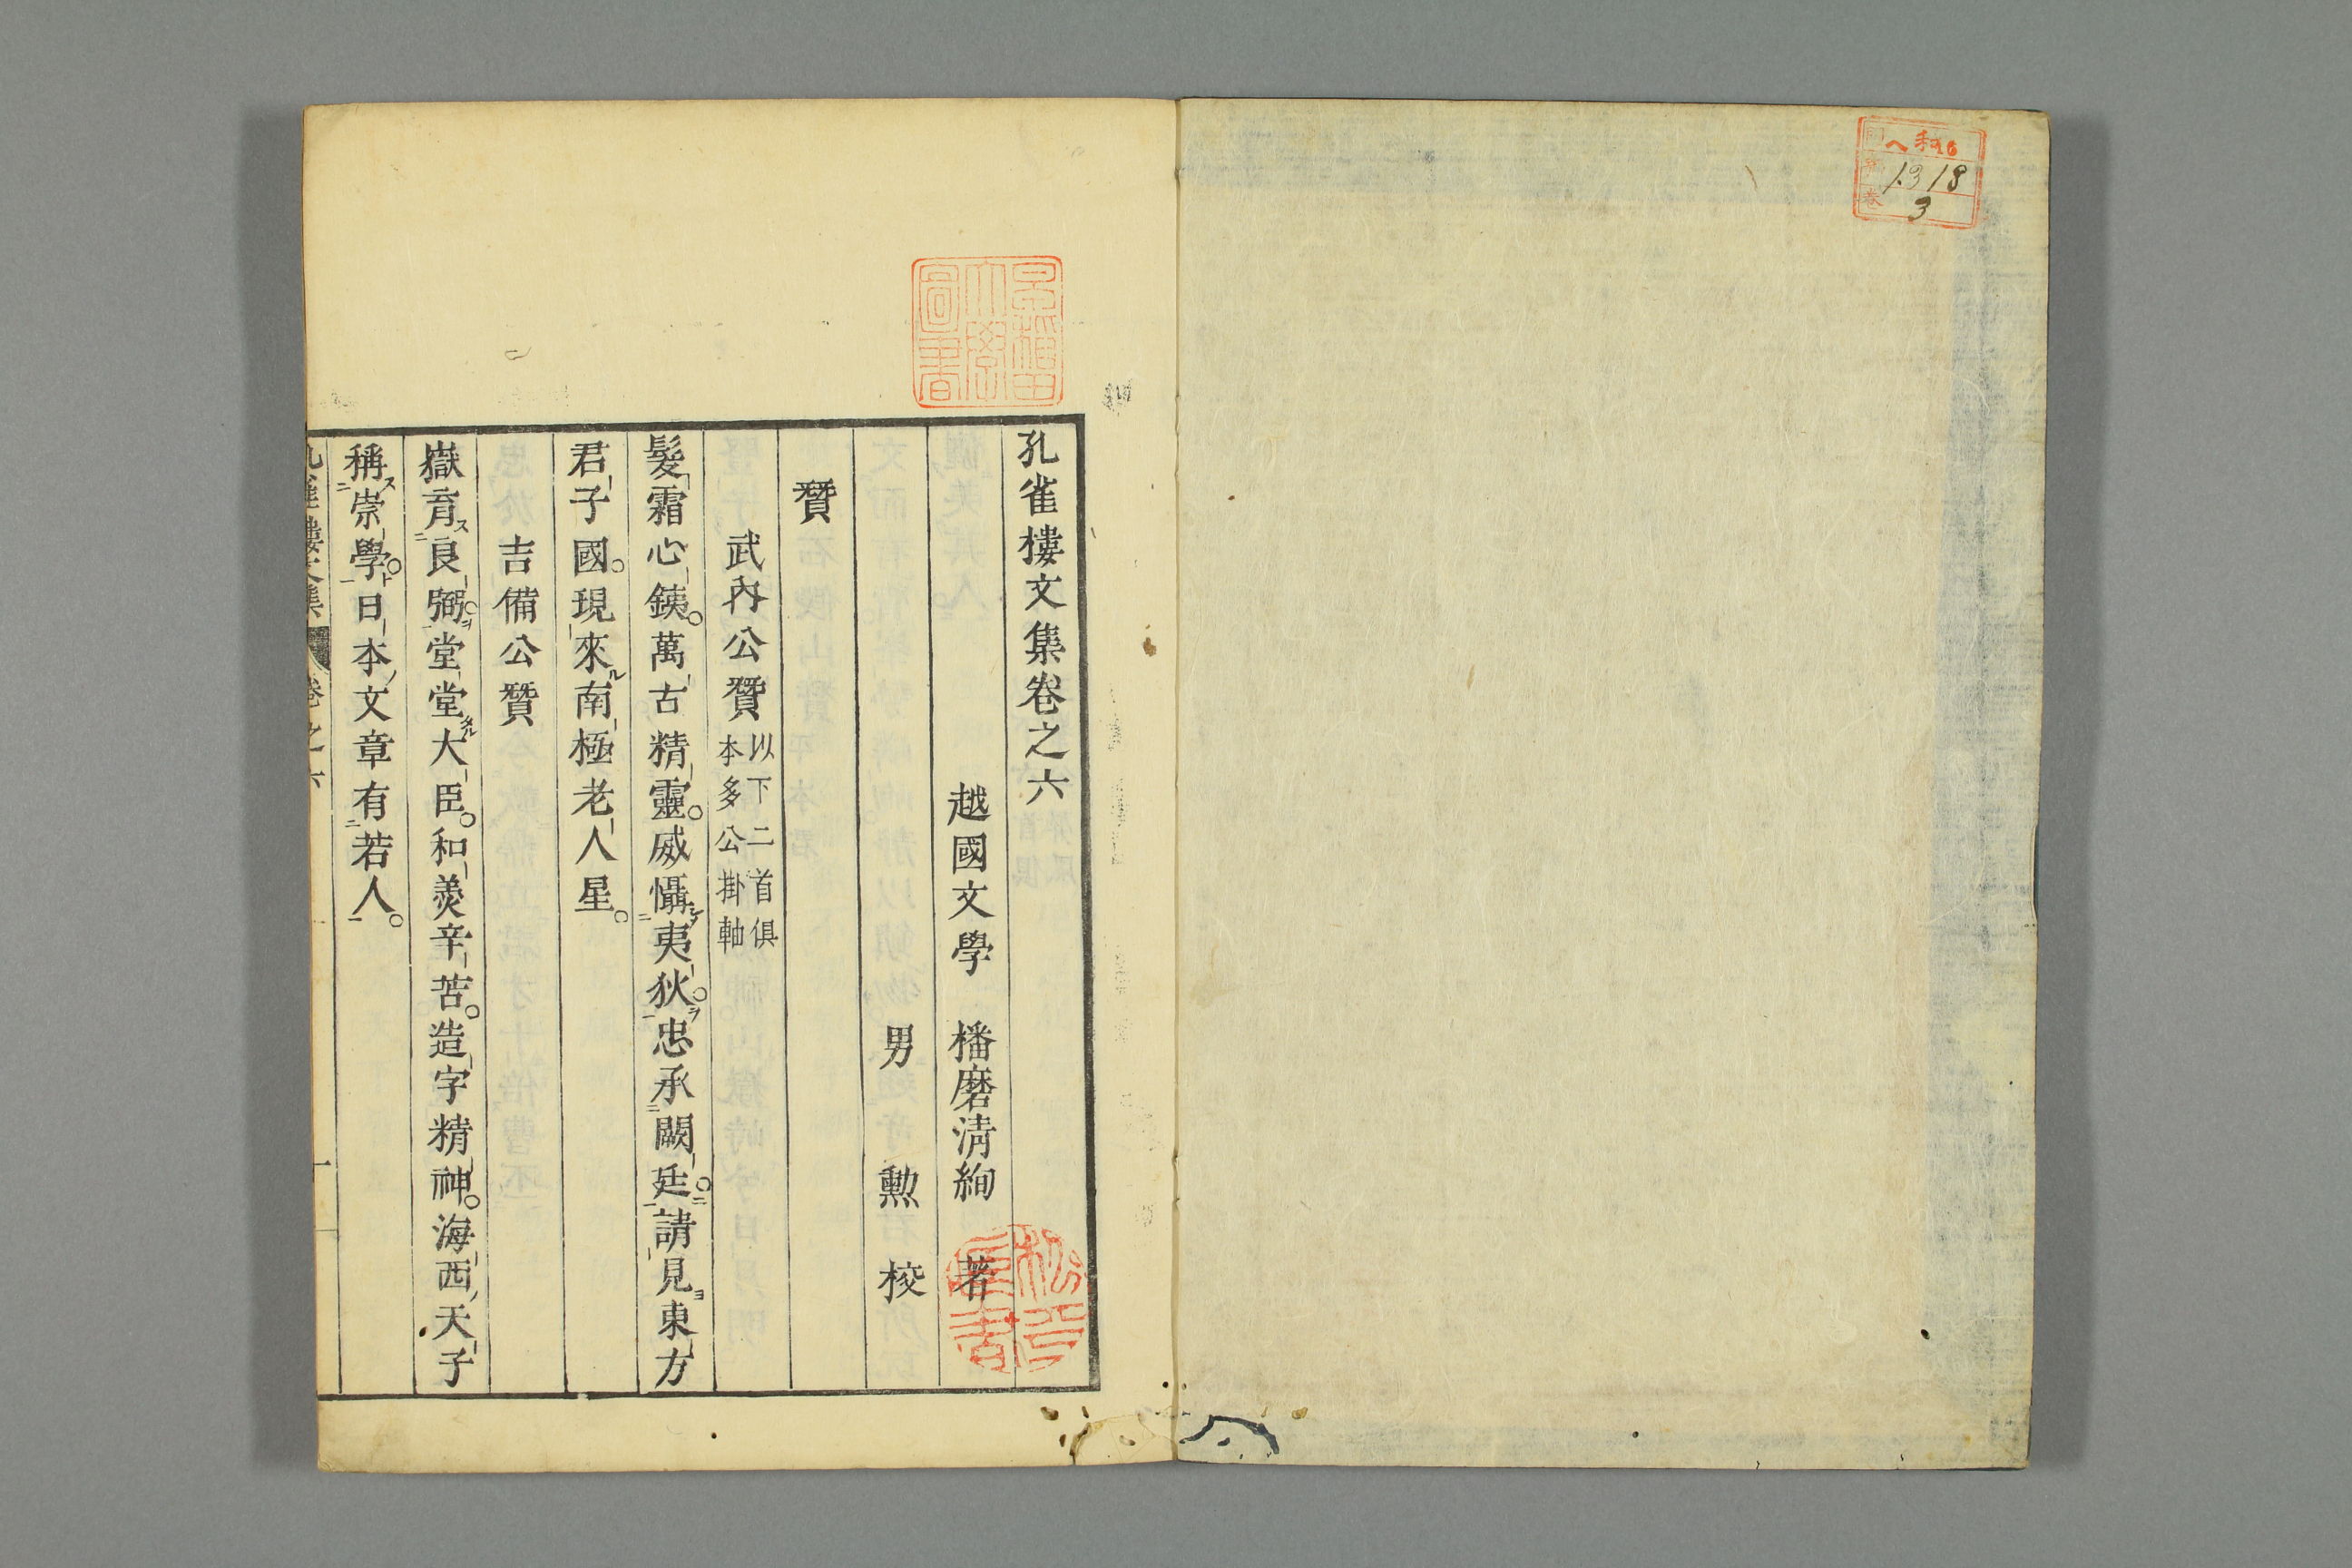 1318
3
早稲田大學圖書
孔雀樓文集卷之六
越國文學　播磨清絢　著
男　勲　校
贊
武內公贊 以下二首俱本多公掛軸
髮霜心鐵。萬古精靈。威懾夷狄。忠承闕廷。請見東方
君子國。現來南極老人星。
吉備公贊
嶽育良弼。堂堂大臣。和羮辛苦。造字精神。海西天子
稱崇學。日本文章有若人。
孔雀樓文集 卷之六 一